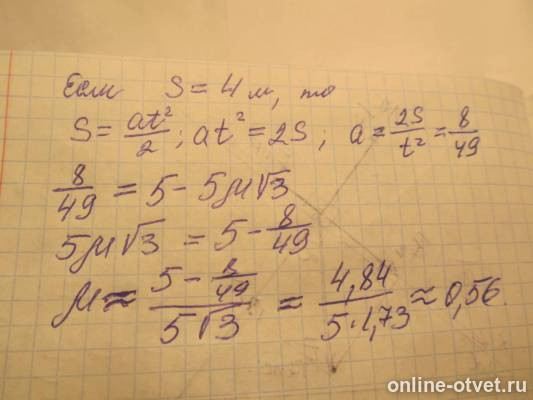 Если S = 4 м, то
S = at²/2; at² = 2S; a = 2S/t² = 8/49
8/49 = 5 - 5μ√3
5μ√3 = 5 - 8/49
μ ≈ (5 - 8/49)/(5√3) = 4,84/(5·1,73) ≈ 0,56.
online-otvet.ru